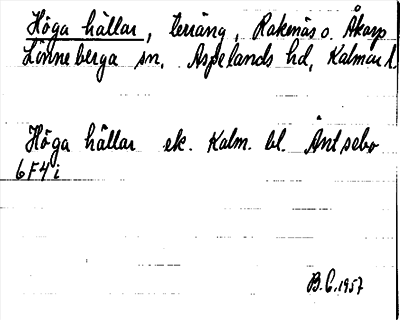 Höga hällar, terräng, Rakenäs o. Åkarp
Lönneberga sn, Aspelands hd, Kalmar l.
Höga hällar ek. Kalm. bl. Äntsebo
6F4i
B.C.1957